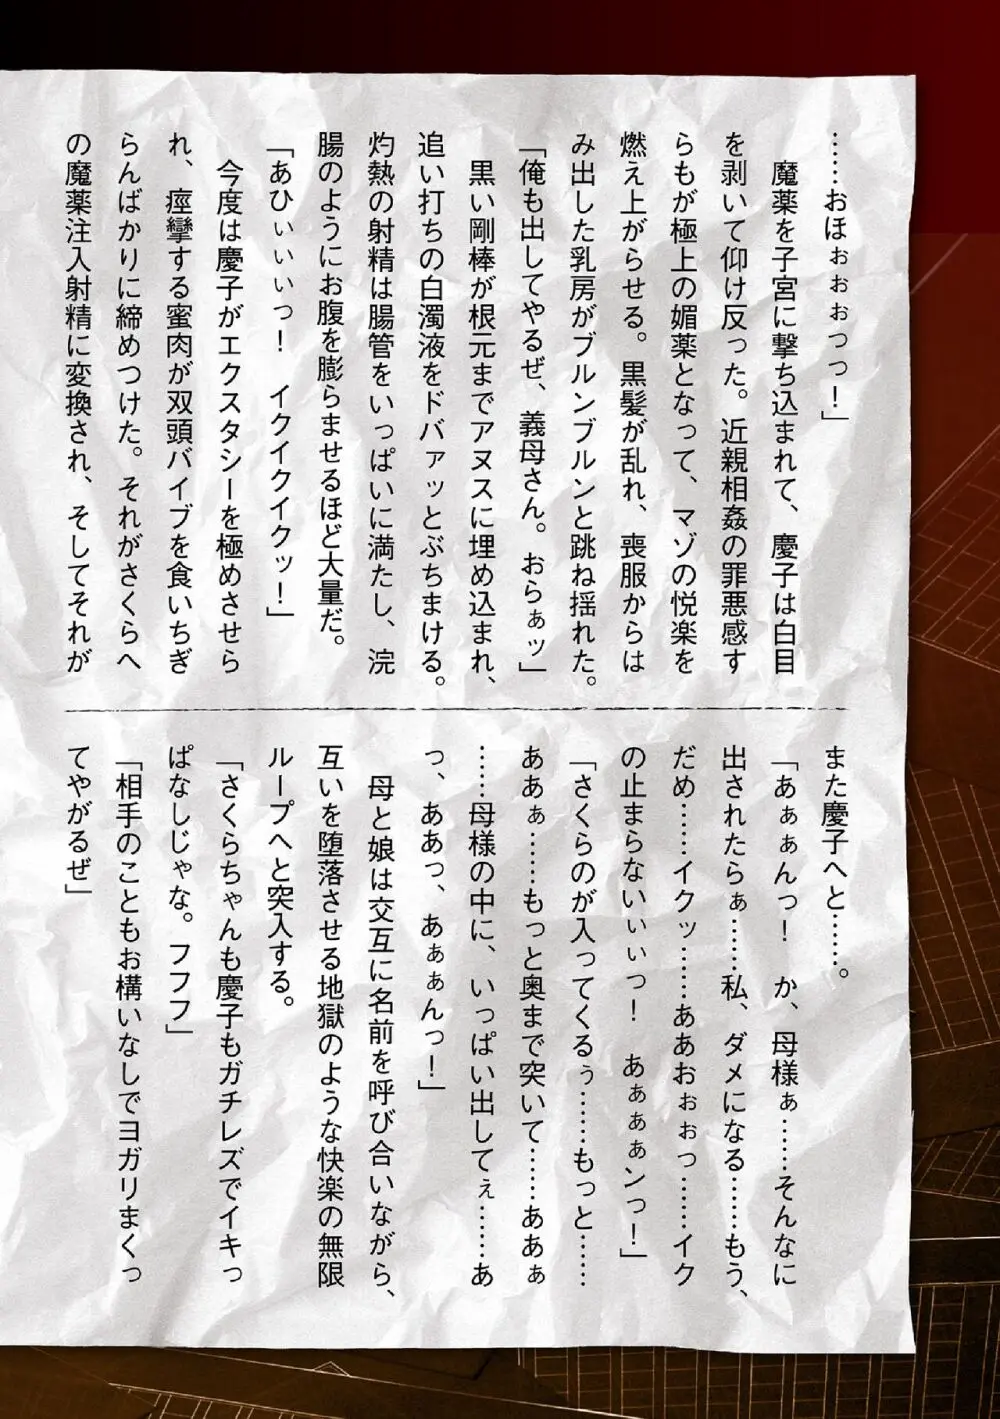 ……おほぉぉぉっっ！」
　魔薬を子宮に撃ち込まれて、慶子は白目
を剥いて仰け反った。近親相姦の罪悪感す
らもが極上の媚薬となって、マゾの悦楽を
燃え上がらせる。黒髪が乱れ、喪服からは
み出した乳房がブルンブルンと跳ね揺れた。
「俺も出してやるぜ、義母さん。おらぁッ」
　黒い剛棒が根元までアヌスに埋め込まれ、
追い打ちの白濁液をドバァッとぶちまける。
灼熱の射精は腸管をいっぱいに満たし、浣
腸のようにお腹を膨らませるほど大量だ。
「あひぃぃぃっ！　イクイクイクッ！」
　今度は慶子がエクスタシーを極めさせら
れ、痙攣する蜜肉が双頭バイブを食いちぎ
らんばかりに締めつけた。それがさくらへ
の魔薬注入射精に変換され、そしてそれが
また慶子へと……。
「あぁぁんっ！　か、母様ぁ……そんなに
出されたらぁ……私、ダメになる……もう、
だめ……イクッ……ああおぉぉっ……イク
の止まらないぃぃっ！　あぁぁぁンっ！」
「さくらのが入ってくるぅ……もっと……
ああぁ……もっと奥まで突いて……ああぁ
……母様の中に、いっぱい出してぇ……あ
っ、ああっ、あぁぁんっ！」
　母と娘は交互に名前を呼び合いながら、
互いを堕落させる地獄のような快楽の無限
ループへと突入する。
「さくらちゃんも慶子もガチレズでイキっ
ぱなしじゃな。フフフ」
「相手のこともお構いなしでヨガリまくっ
てやがるぜ」